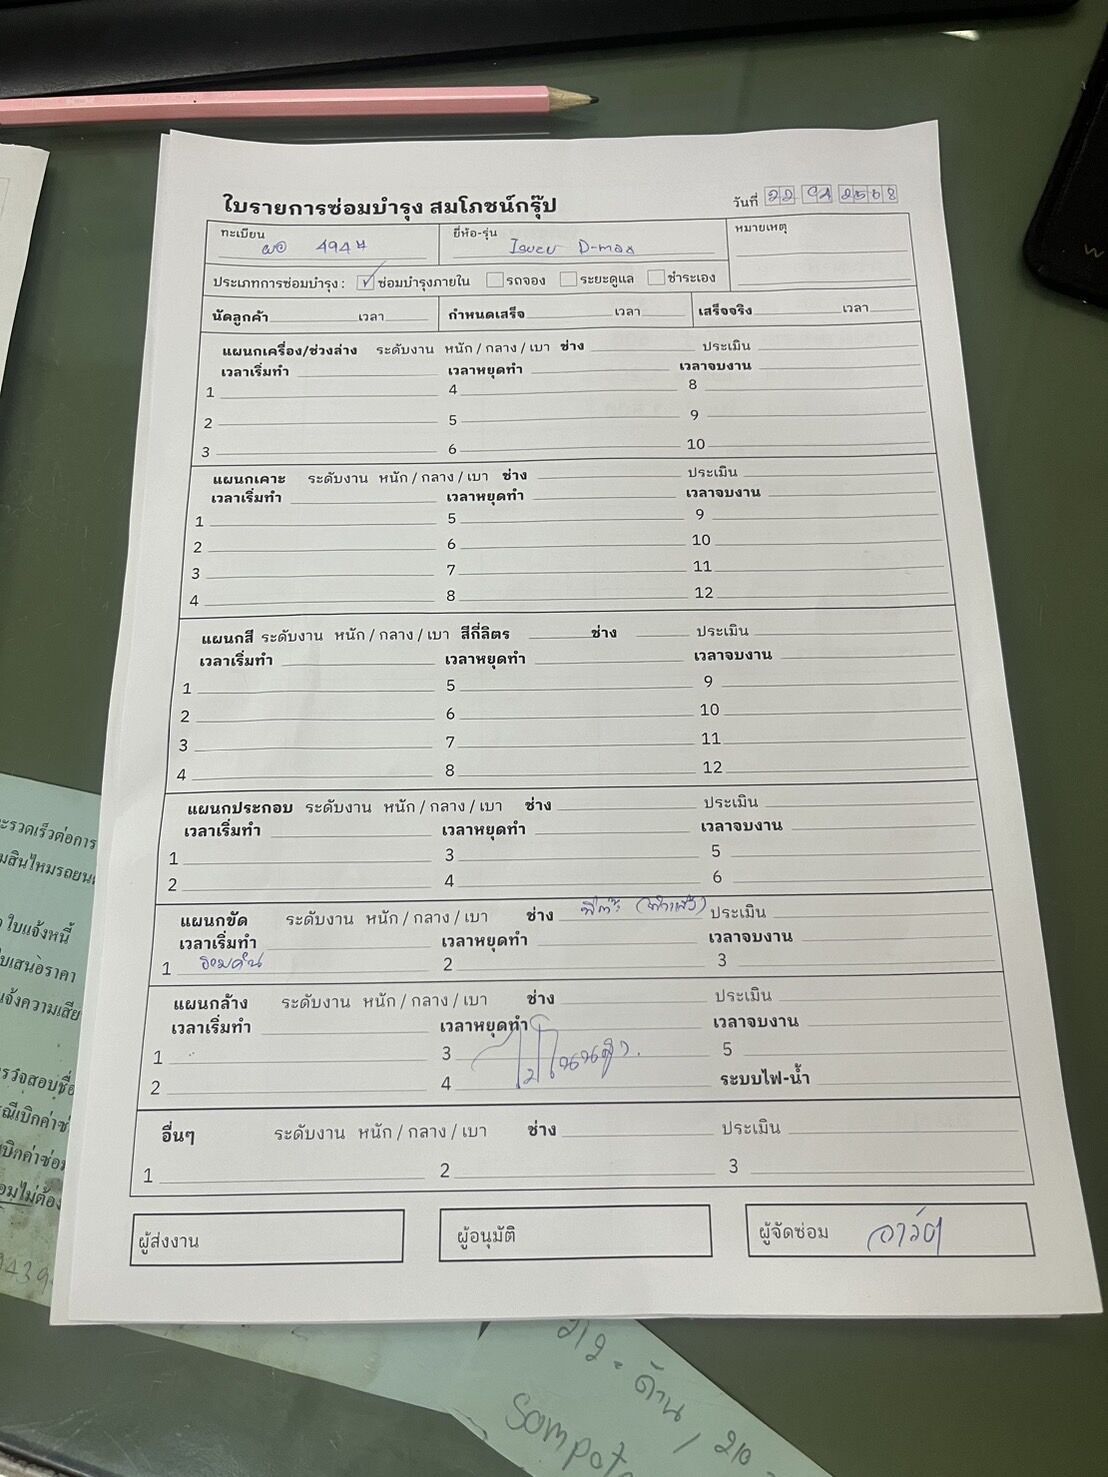 ใบรายการซ่อมบำรุง สมโภชน์กรุ๊ป
วันที่ 22 04 2568
ทะเบียน ยี่ห้อ-รุ่น Isuzu D-max หมายเหตุ
ประเภทการซ่อมบำรุง : ✓ ซ่อมบำรุงภายใน รถจอง ระยะดูแล ชำระเอง
นัดลูกค้า เวลา กำหนดเสร็จ เวลา เสร็จจริง เวลา
แผนกเครื่อง/ช่วงล่าง ระดับงาน หนัก / กลาง / เบา ช่าง ประเมิน
เวลาเริ่มทำ เวลาหยุดทำ เวลาจบงาน
1 4 8
2 5 9
3 6 10
แผนกเคาะ ระดับงาน หนัก / กลาง / เบา ช่าง ประเมิน
เวลาเริ่มทำ เวลาหยุดทำ เวลาจบงาน
1 5 9
2 6 10
3 7 11
4 8 12
แผนกสี ระดับงาน หนัก / กลาง / เบา สีกี่ลิตร ช่าง ประเมิน
เวลาเริ่มทำ เวลาหยุดทำ เวลาจบงาน
1 5 9
2 6 10
3 7 11
4 8 12
แผนกประกอบ ระดับงาน หนัก / กลาง / เบา ช่าง ประเมิน
เวลาเริ่มทำ เวลาหยุดทำ เวลาจบงาน
1 3 5
2 4 6
แผนกขัด ระดับงาน หนัก / กลาง / เบา ช่าง (ทำแล้ว) ประเมิน
เวลาเริ่มทำ เวลาหยุดทำ เวลาจบงาน
1 2 3
แผนกล้าง ระดับงาน หนัก / กลาง / เบา ช่าง ประเมิน
เวลาเริ่มทำ เวลาหยุดทำ เวลาจบงาน
1 3 5
2 4 ระบบไฟ-น้ำ
อื่นๆ ระดับงาน หนัก / กลาง / เบา ช่าง ประเมิน
1 2 3
ผู้ส่งงาน ผู้อนุมัติ ผู้จัดซ่อม
ะรวดเร็วต่อการ
ใบแจ้งหนี้
บเสนอราคา
212 = ด้าน / 210